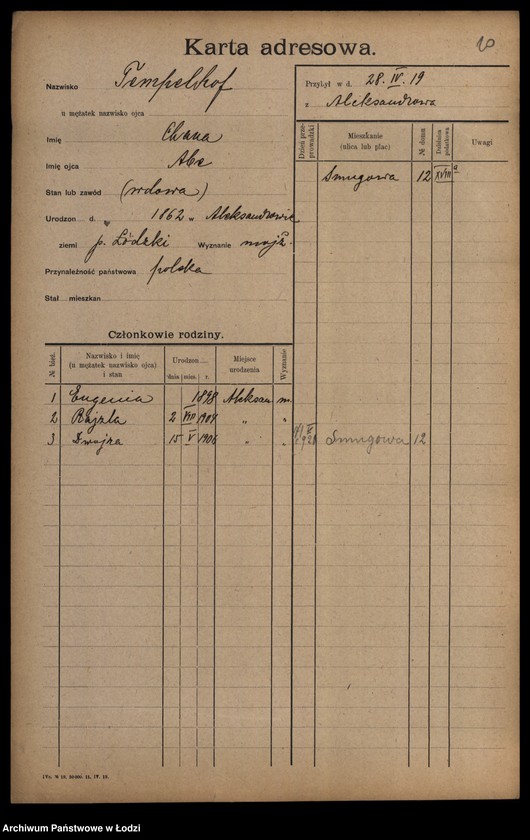 Karta adresowa.
10
Nazwisko Tempelhof
u mężatek nazwisko ojca
Imię Chana
Imię ojca Abe
Stan lub zawód (wdowa)
Urodzon d. " 1862 " Aleksandrowie
ziemi p. Łódzki Wyznanie mojż.
Przynależność państwowa polska
Stał mieszkan
Przybył w d. 28.IV.19
z Aleksandrowa
Dzień prze-prowadzki Mieszkanie (ulica lub plac) № domu Dzielnica podatkowa Uwagi
Smugowa 12 XVIII a
Członkowie rodziny.
№ bież. Nazwisko i imię (u mężatek nazwisko ojca) i stan Urodzon dnia mies. r. Miejsce urodzenia Wyznanie
1 Eugenia 1898 Aleksan. m.
2 Rajzla 2 VIII 1904 " "
3 Dwojra 15 V 1906 " "
Smugowa 12
Archiwum Państwowe w Łodzi